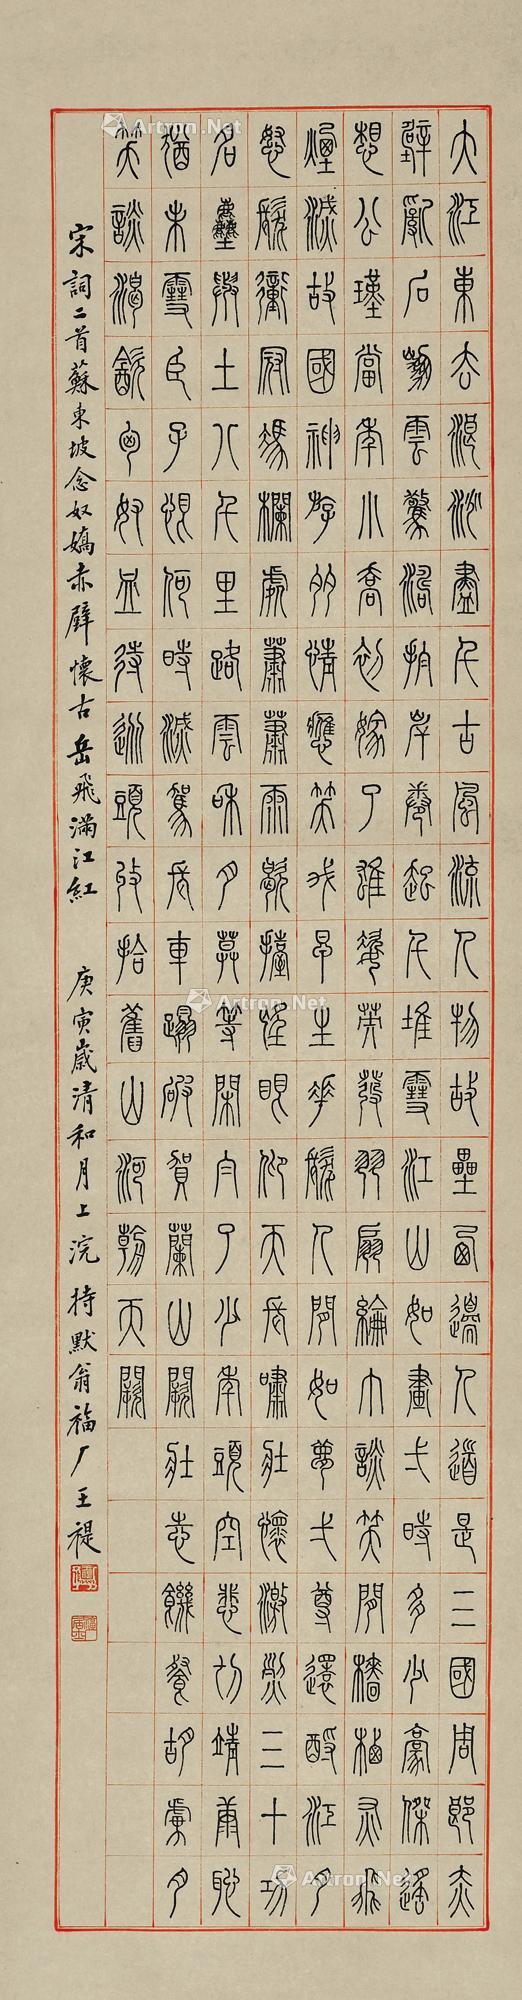 大江東去浪淘盡千古風流人物故壘西邊人道是三國周郎赤
壁亂石崩雲驚濤拍岸捲起千堆雪江山如畫一時多少豪傑遙
想公瑾當年小喬初嫁了雄姿英發羽扇綸巾談笑間檣櫓灰飛
煙滅故國神遊多情應笑我早生華髮人間如夢一尊還酹江月
怒髮衝冠憑欄處蕭蕭雨歇擡望眼仰天長嘯壯懷激烈三十功
名塵與土八千里路雲和月莫等閒白了少年頭空悲切靖康恥
猶未雪臣子恨何時滅駕長車踏破賀蘭山闕壯志饑餐胡虜肉
笑談渴飲匈奴血待從頭收拾舊山河朝天闕
宋詞二首蘇東坡念奴嬌赤壁懷古岳飛滿江紅 庚寅歲清和月上浣 持默翁福厂王禔
Artron.Net
Artron.Net
Artron.Net